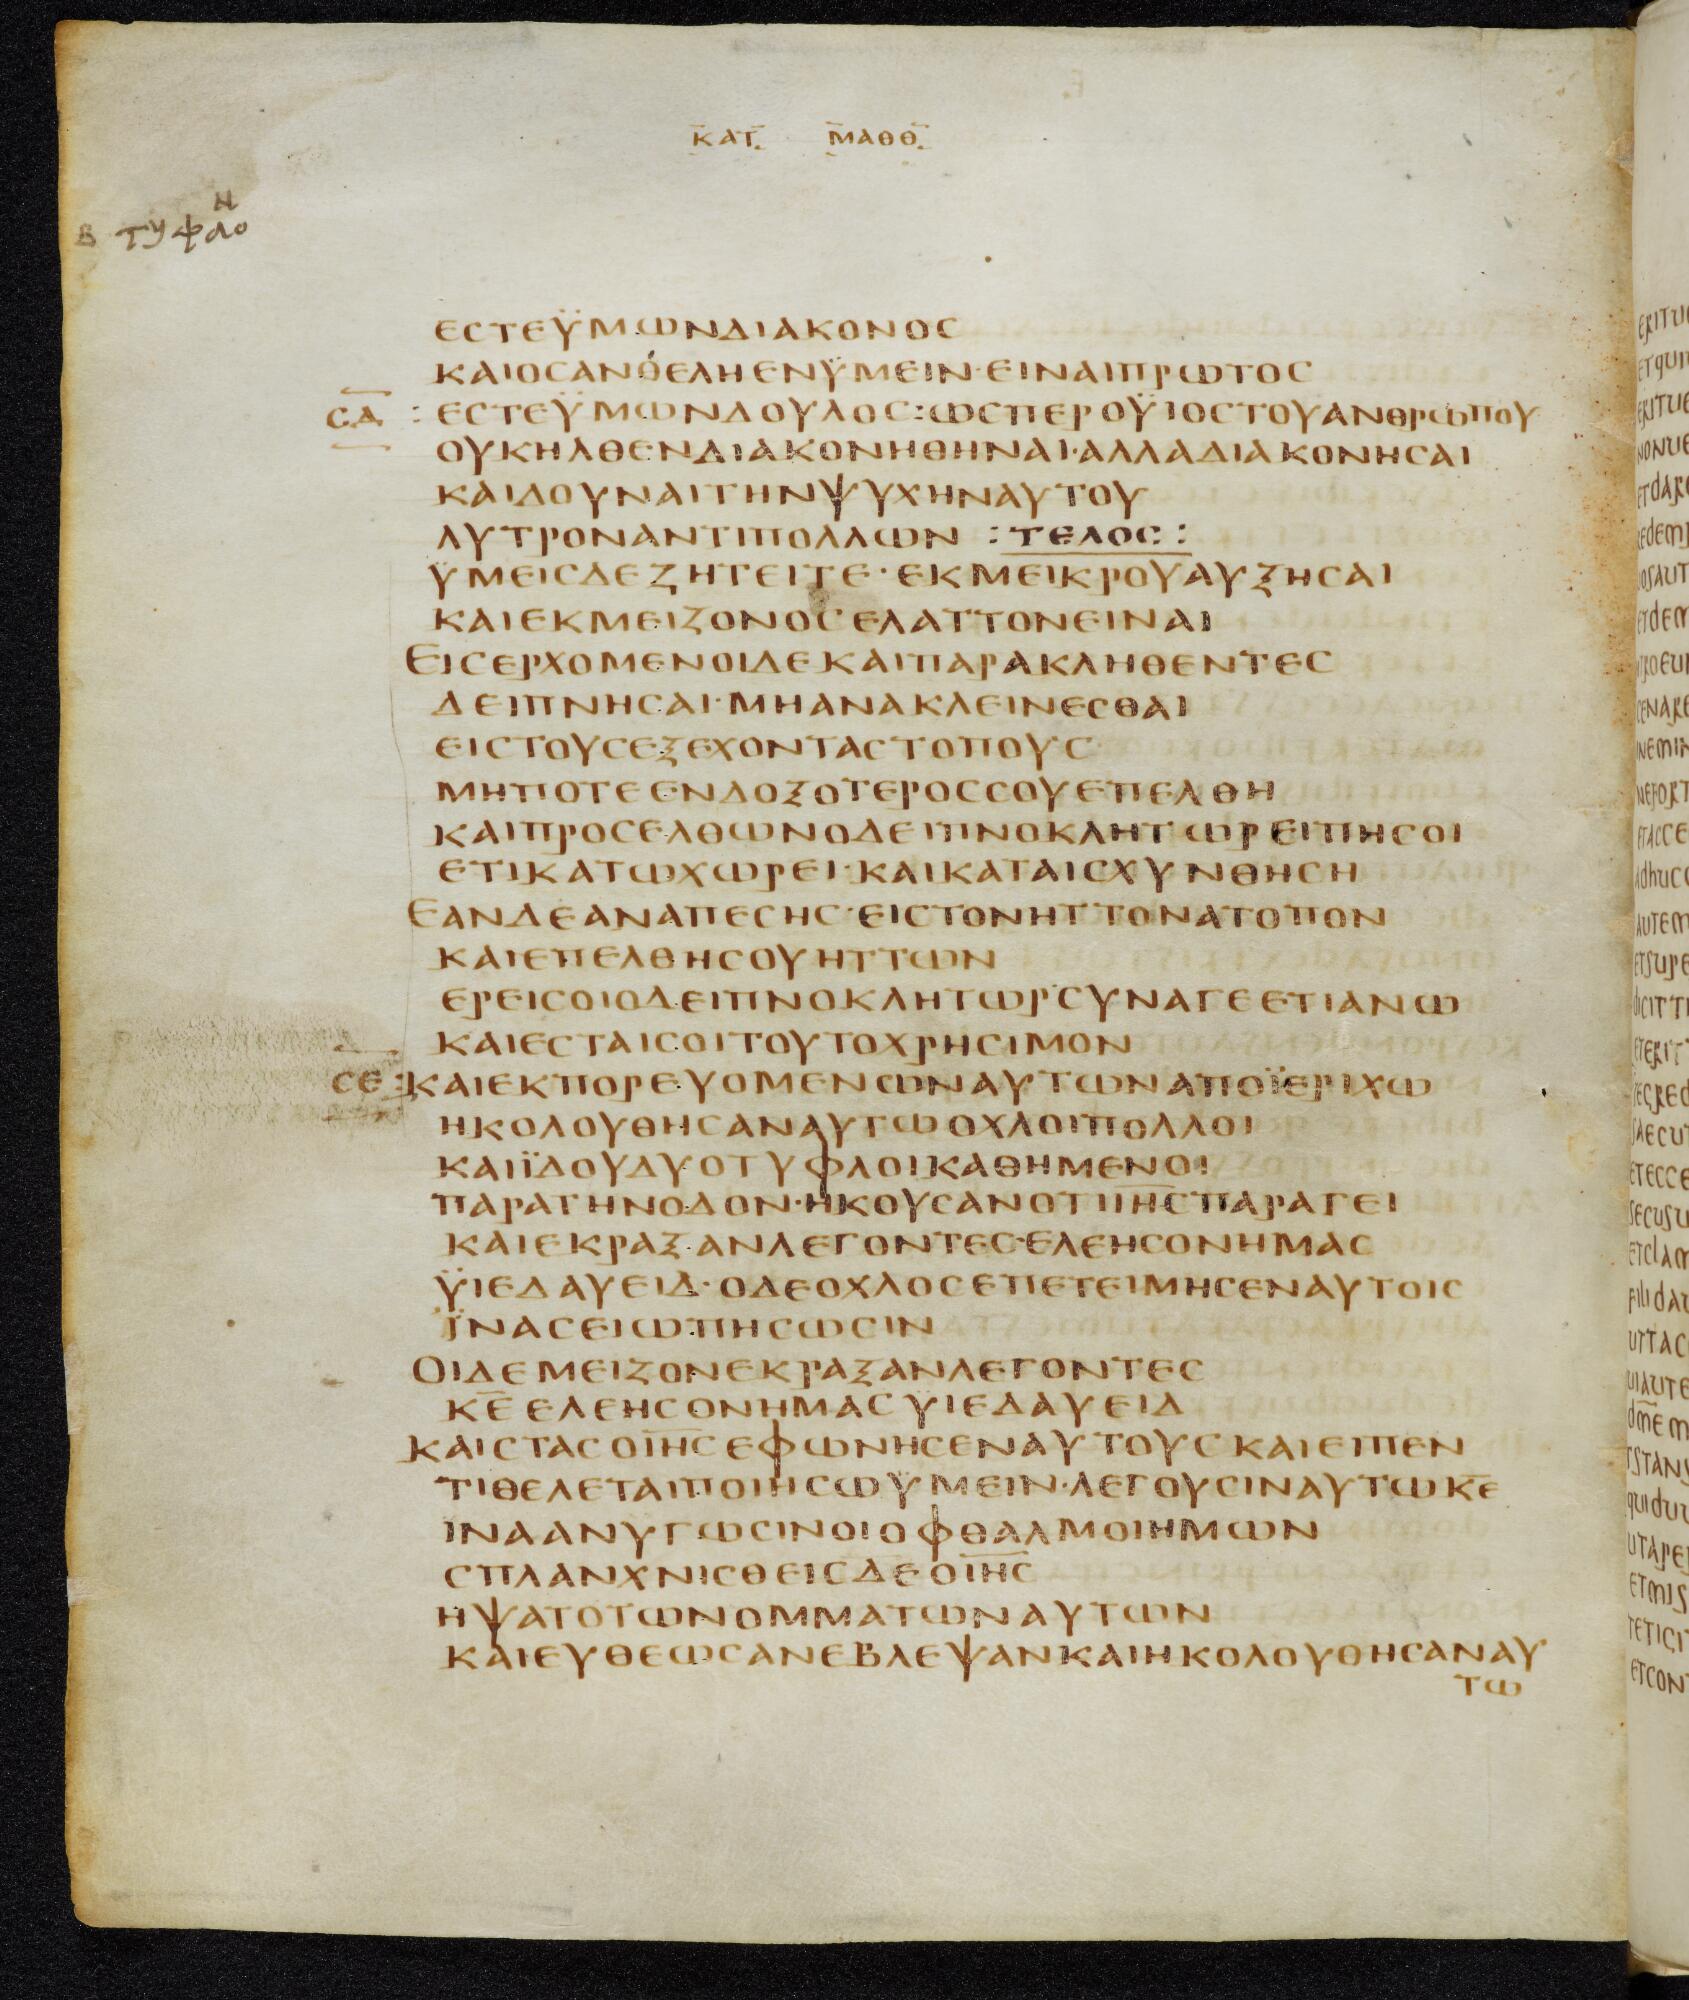 ΚΑΤ ΜΑΘΘ
Ν
Β ΤΥΦΛΟ
ΕϹΤΕΫΜΩΝΔΙΑΚΟΝΟϹ
ΚΑΙΟϹΑΝΘΕΛΗΕΝΫΜΕΙΝ·ΕΙΝΑΙΠΡΩΤΟϹ
ϹΔ : ΕϹΤΕΫΜΩΝΔΟΥΛΟϹ:ΩϹΠΕΡΟΫΙΟϹΤΟΥΑΝΘΡΩΠΟΥ
ΟΥΚΗΛΘΕΝΔΙΑΚΟΝΗΘΗΝΑΙ·ΑΛΛΑΔΙΑΚΟΝΗϹΑΙ
ΚΑΙΔΟΥΝΑΙΤΗΝΨΥΧΗΝΑΥΤΟΥ
ΛΥΤΡΟΝΑΝΤΙΠΟΛΛΩΝ :ΤΕΛΟϹ:
ΫΜΕΙϹΔΕΖΗΤΕΙΤΕ·ΕΚΜΕΙΚΡΟΥΑΥΞΗϹΑΙ
ΚΑΙΕΚΜΕΙΖΟΝΟϹΕΛΑΤΤΟΝΕΙΝΑΙ
ΕΙϹΕΡΧΟΜΕΝΟΙΔΕΚΑΙΠΑΡΑΚΛΗΘΕΝΤΕϹ
ΔΕΙΠΝΗϹΑΙ·ΜΗΑΝΑΚΛΕΙΝΕϹΘΑΙ
ΕΙϹΤΟΥϹΕΞΕΧΟΝΤΑϹΤΟΠΟΥϹ
ΜΗΠΟΤΕΕΝΔΟΞΟΤΕΡΟϹϹΟΥΕΠΕΛΘΗ
ΚΑΙΠΡΟϹΕΛΘΩΝΟΔΕΙΠΝΟΚΛΗΤΩΡΕΙΠΗϹΟΙ
ΕΤΙΚΑΤΩΧΩΡΕΙ·ΚΑΙΚΑΤΑΙϹΧΥΝΘΗϹΗ
ΕΑΝΔΕΑΝΑΠΕϹΗϹ·ΕΙϹΤΟΝΗΤΤΟΝΑΤΟΠΟΝ
ΚΑΙΕΠΕΛΘΗϹΟΥΗΤΤΩΝ
ΕΡΕΙϹΟΙΟΔΕΙΠΝΟΚΛΗΤΩΡ·ϹΥΝΑΓΕΕΤΙΑΝΩ
ΚΑΙΕϹΤΑΙϹΟΙΤΟΥΤΟΧΡΗϹΙΜΟΝ
ϹΕ :ΚΑΙΕΚΠΟΡΕΥΟΜΕΝΩΝΑΥΤΩΝΑΠΟΪΕΡΙΧΩ
ΗΚΟΛΟΥΘΗϹΑΝΑΥΤΩΟΧΛΟΙΠΟΛΛΟΙ
ΚΑΙΪΔΟΥΔΥΟΤΥΦΛΟΙΚΑΘΗΜΕΝΟΙ
ΠΑΡΑΤΗΝΟΔΟΝ·ΗΚΟΥϹΑΝΟΤΙΙΗϹΠΑΡΑΓΕΙ
ΚΑΙΕΚΡΑΞΑΝΛΕΓΟΝΤΕϹ·ΕΛΕΗϹΟΝΗΜΑϹ
ΫΙΕΔΑΥΕΙΔ·ΟΔΕΟΧΛΟϹΕΠΕΤΕΙΜΗϹΕΝΑΥΤΟΙϹ
ΪΝΑϹΕΙΩΠΗϹΩϹΙΝ
ΟΙΔΕΜΕΙΖΟΝΕΚΡΑΞΑΝΛΕΓΟΝΤΕϹ
Κ̅Ε̅ΕΛΕΗϹΟΝΗΜΑϹΥΙΕΔΑΥΕΙΔ
ΚΑΙϹΤΑϹΟΙ̅Η̅Ϲ̅ΕΦΩΝΗϹΕΝΑΥΤΟΥϹΚΑΙΕΙΠΕΝ
ΤΙΘΕΛΕΤΑΙΠΟΙΗϹΩΫΜΕΙΝ·ΛΕΓΟΥϹΙΝΑΥΤΩΚ̅Ε̅
ΙΝΑΑΝΥΓΩϹΙΝΟΙΟΦΘΑΛΜΟΙΗΜΩΝ
ϹΠΛΑΝΧΝΙϹΘΕΙϹΔΕΟΙ̅Η̅Ϲ̅
ΗΨΑΤΟΤΩΝΟΜΜΑΤΩΝΑΥΤΩΝ
ΚΑΙΕΥΘΕΩϹΑΝΕΒΛΕΨΑΝΚΑΙΗΚΟΛΟΥΘΗϹΑΝΑΥ
ΤΩ